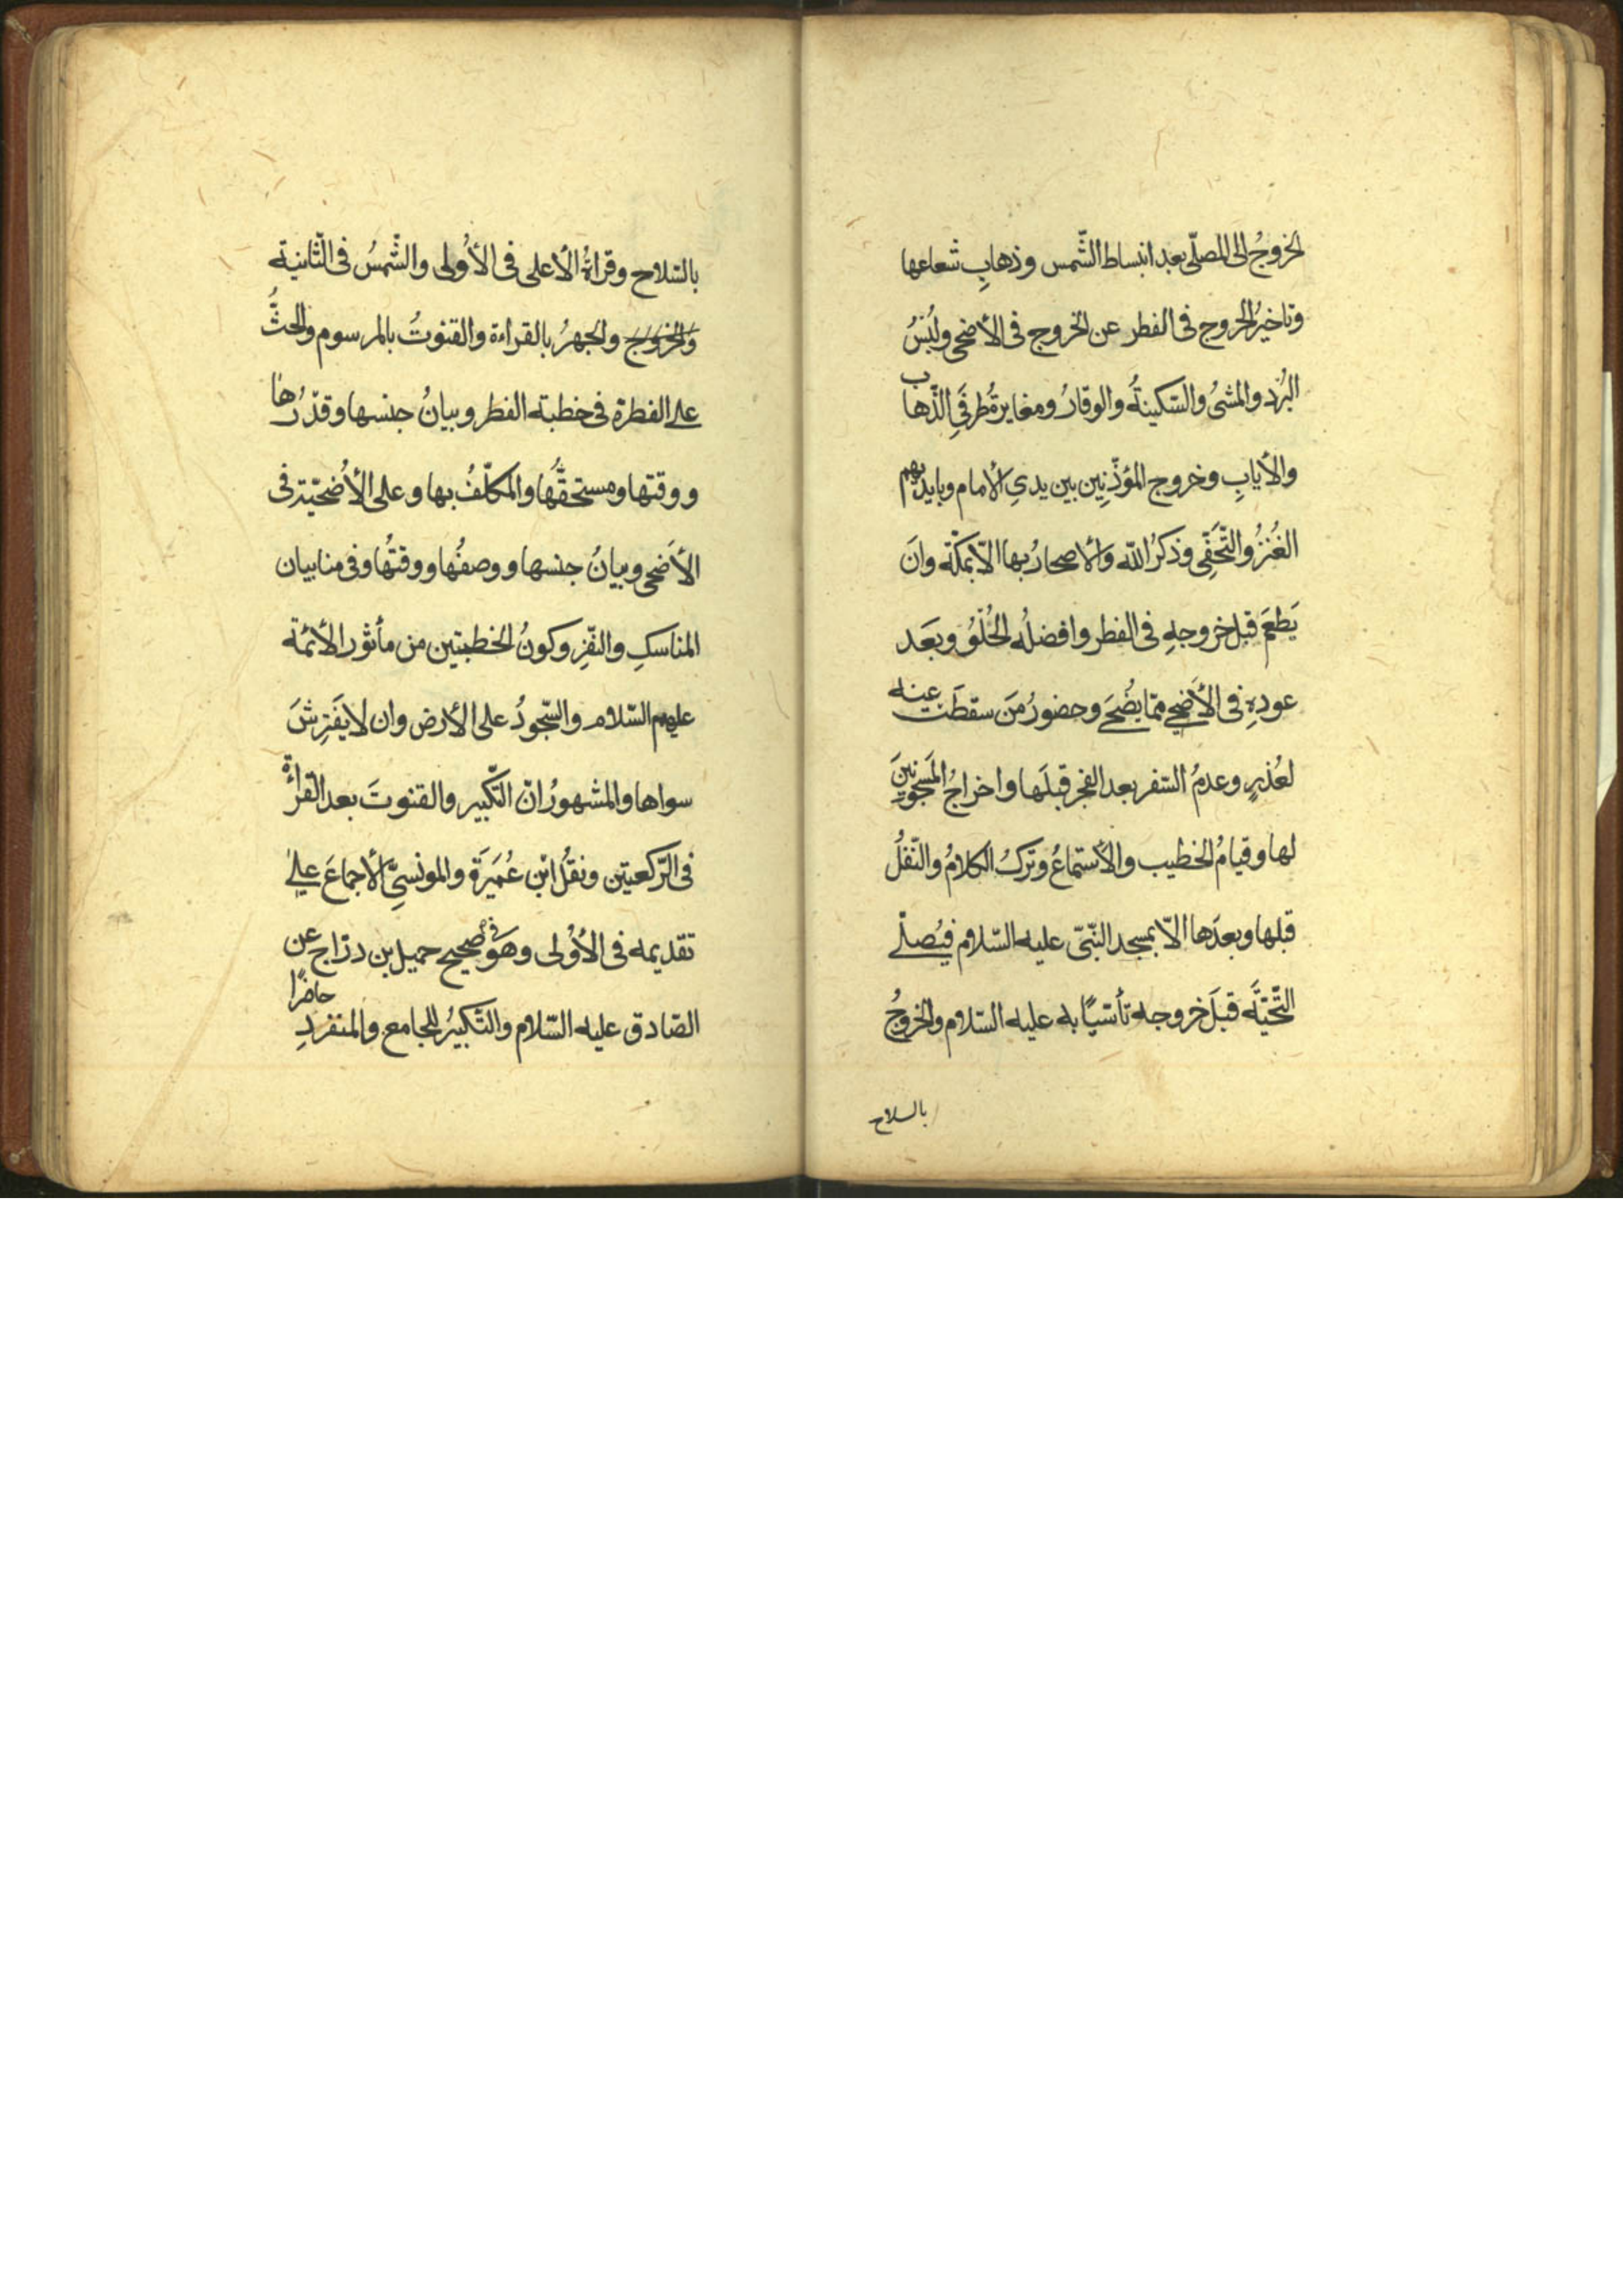 الخروجُ الى المصلّى بعد انبساط الشّمس وذهابِ شعاعها
وتاخيرُ الخروج فى الفطر عن الخروج فى الأضحى ولُبْسُ
البُرْدِ والمشىُ والسّكينةُ والوقارُ ومغايرةُ طرفَىِ الذّهاب
والأيابِ وخروج المؤذّنِين بين يدىِ الأمام وبايديهم
العُنَزُ والتّحَفِّى وذكرُ اللّه والأصحارُ بها الّا بمكّة وانَ
يَطعَمَ قبل خروجهِ فى الفطر وافضلُه الحُلْوُ وبعَد
عودِهِ فى الأضحى ممّا يُضَحّى وحضورُ مَن سقطَت عنه
لعُذرٍ وعدمُ السّفر بعد الفجر قبلَها واخراجُ المَسجونينَ
لها وقيامُ الخطيب والأستماعُ وتركُ الكلامُ والنّفلُ
قبلها وبعدَها الّا بمسجد النّبىّ عليه السّلام فيُصلّى
التّحيّة قبلَ خروجه تأسّيًا به عليه السّلام والخروجُ
بالسلاح
بالسّلاح وقراءةُ الأعلى فى الأولى والشّمسُ فى الثّانية
والخروج والجهرُ بالقراءة والقنوتُ بالمرسوم والحثُّ
على الفطرة فى خطبة الفطر وبيانُ جنسها وقدْرُها
ووقتها ومستحقُّها والمكلّفُ بها وعلى الأُضحيّة فى
الأضحى وبيانُ جنسها ووصفُها ووقتُها وفى منا بيان
المناسكِ والنّفْرِ وكونُ الخطبتين من مأثور الأئمّة
عليهم السّلام والسّجودُ على الأرض وان لا يفَترِشَ
سواها والمشهورُ انّ التّكبير والقنوتَ بعد القراءة
فى الرّكعتين ونقلُ ابْن عُمَيرَة والمونسىِّ الأجماعَ على
تقديمه فى الأُوْلى وهَو فى صحيح جميل بن درّاج عن
الصّادق عليه السّلام والتّكبيرُ للجامع والمنفردِ حاضرًا